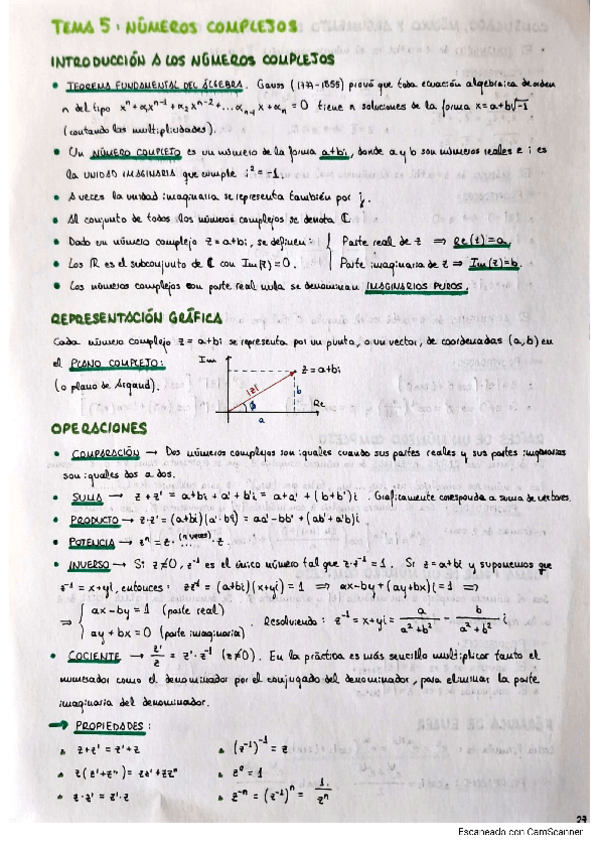 TEMA 5: NÚMEROS COMPLEJOS
INTRODUCCIÓN A LOS NÚMEROS COMPLEJOS
• TEOREMA FUNDAMENTAL DEL ÁLGEBRA. Gauss (1777-1855) probó que toda ecuación algebraica de orden
n del tipo xⁿ + α₁xⁿ⁻¹ + α₂xⁿ⁻² + ... αₙ₋₁ x + αₙ = 0 tiene n soluciones de la forma x = a+b√-1
(contando las multiplicidades).
• Un NÚMERO COMPLEJO es un número de la forma a+bi, donde a y b son números reales e i es
la UNIDAD IMAGINARIA que cumple i² = -1.
• A veces la unidad imaginaria se representa también por j.
• Al conjunto de todos los números complejos se denota ℂ
• Dado un número complejo z = a+bi, se definen: { Parte real de z ⟹ Re(z)=a
• Los ℝ es el subconjunto de ℂ con Im(z)=0. Parte imaginaria de z ⟹ Im(z)=b.
• Los números complejos con parte real nula se denominan IMAGINARIOS PUROS.
REPRESENTACIÓN GRÁFICA
Cada número complejo z = a+bi se representa por un punto, o un vector, de coordenadas (a,b) en
el PLANO COMPLEJO:
(o plano de Argand).
Im
z = a+bi
|z|
b
ϕ
Re
a
OPERACIONES
• COMPARACIÓN → Dos números complejos son iguales cuando sus partes reales y sus partes imaginarias
son iguales dos a dos.
• SUMA → z + z' = a+bi + a'+b'i = a+a' + (b+b')i. Gráficamente corresponde a suma de vectores.
• PRODUCTO → z·z' = (a+bi)(a'·b'i) = aa'-bb' + (ab'+a'b)i
• POTENCIA → zⁿ = z· (n veces) ... ·z.
• INVERSO → Si z≠0, z⁻¹ es el único número tal que z·z⁻¹ = 1. Si z = a+bi y suponemos que
z⁻¹ = x+yi, entonces: zz⁻¹ = (a+bi)(x+yi) = 1 ⟹ ax-by+(ay+bx)i = 1 ⟹
⟹ { ax-by = 1 (parte real)
ay + bx = 0 (parte imaginaria). Resolviendo: z⁻¹ = x+yi = a/(a²+b²) - b/(a²+b²) i
• COCIENTE → z'/z = z'·z⁻¹ (z≠0). En la práctica es más sencillo multiplicar tanto el
numerador como el denominador por el conjugado del denominador, para eliminar la parte
imaginaria del denominador.
→ PROPIEDADES:
• z+z' = z'+z • (z⁻¹)⁻¹ = z
• z(z'+z'') = zz' + zz'' • z⁰ = 1
• z·z' = z'·z • z⁻ⁿ = (z⁻¹)ⁿ = 1/zⁿ
27
Escaneado con CamScanner